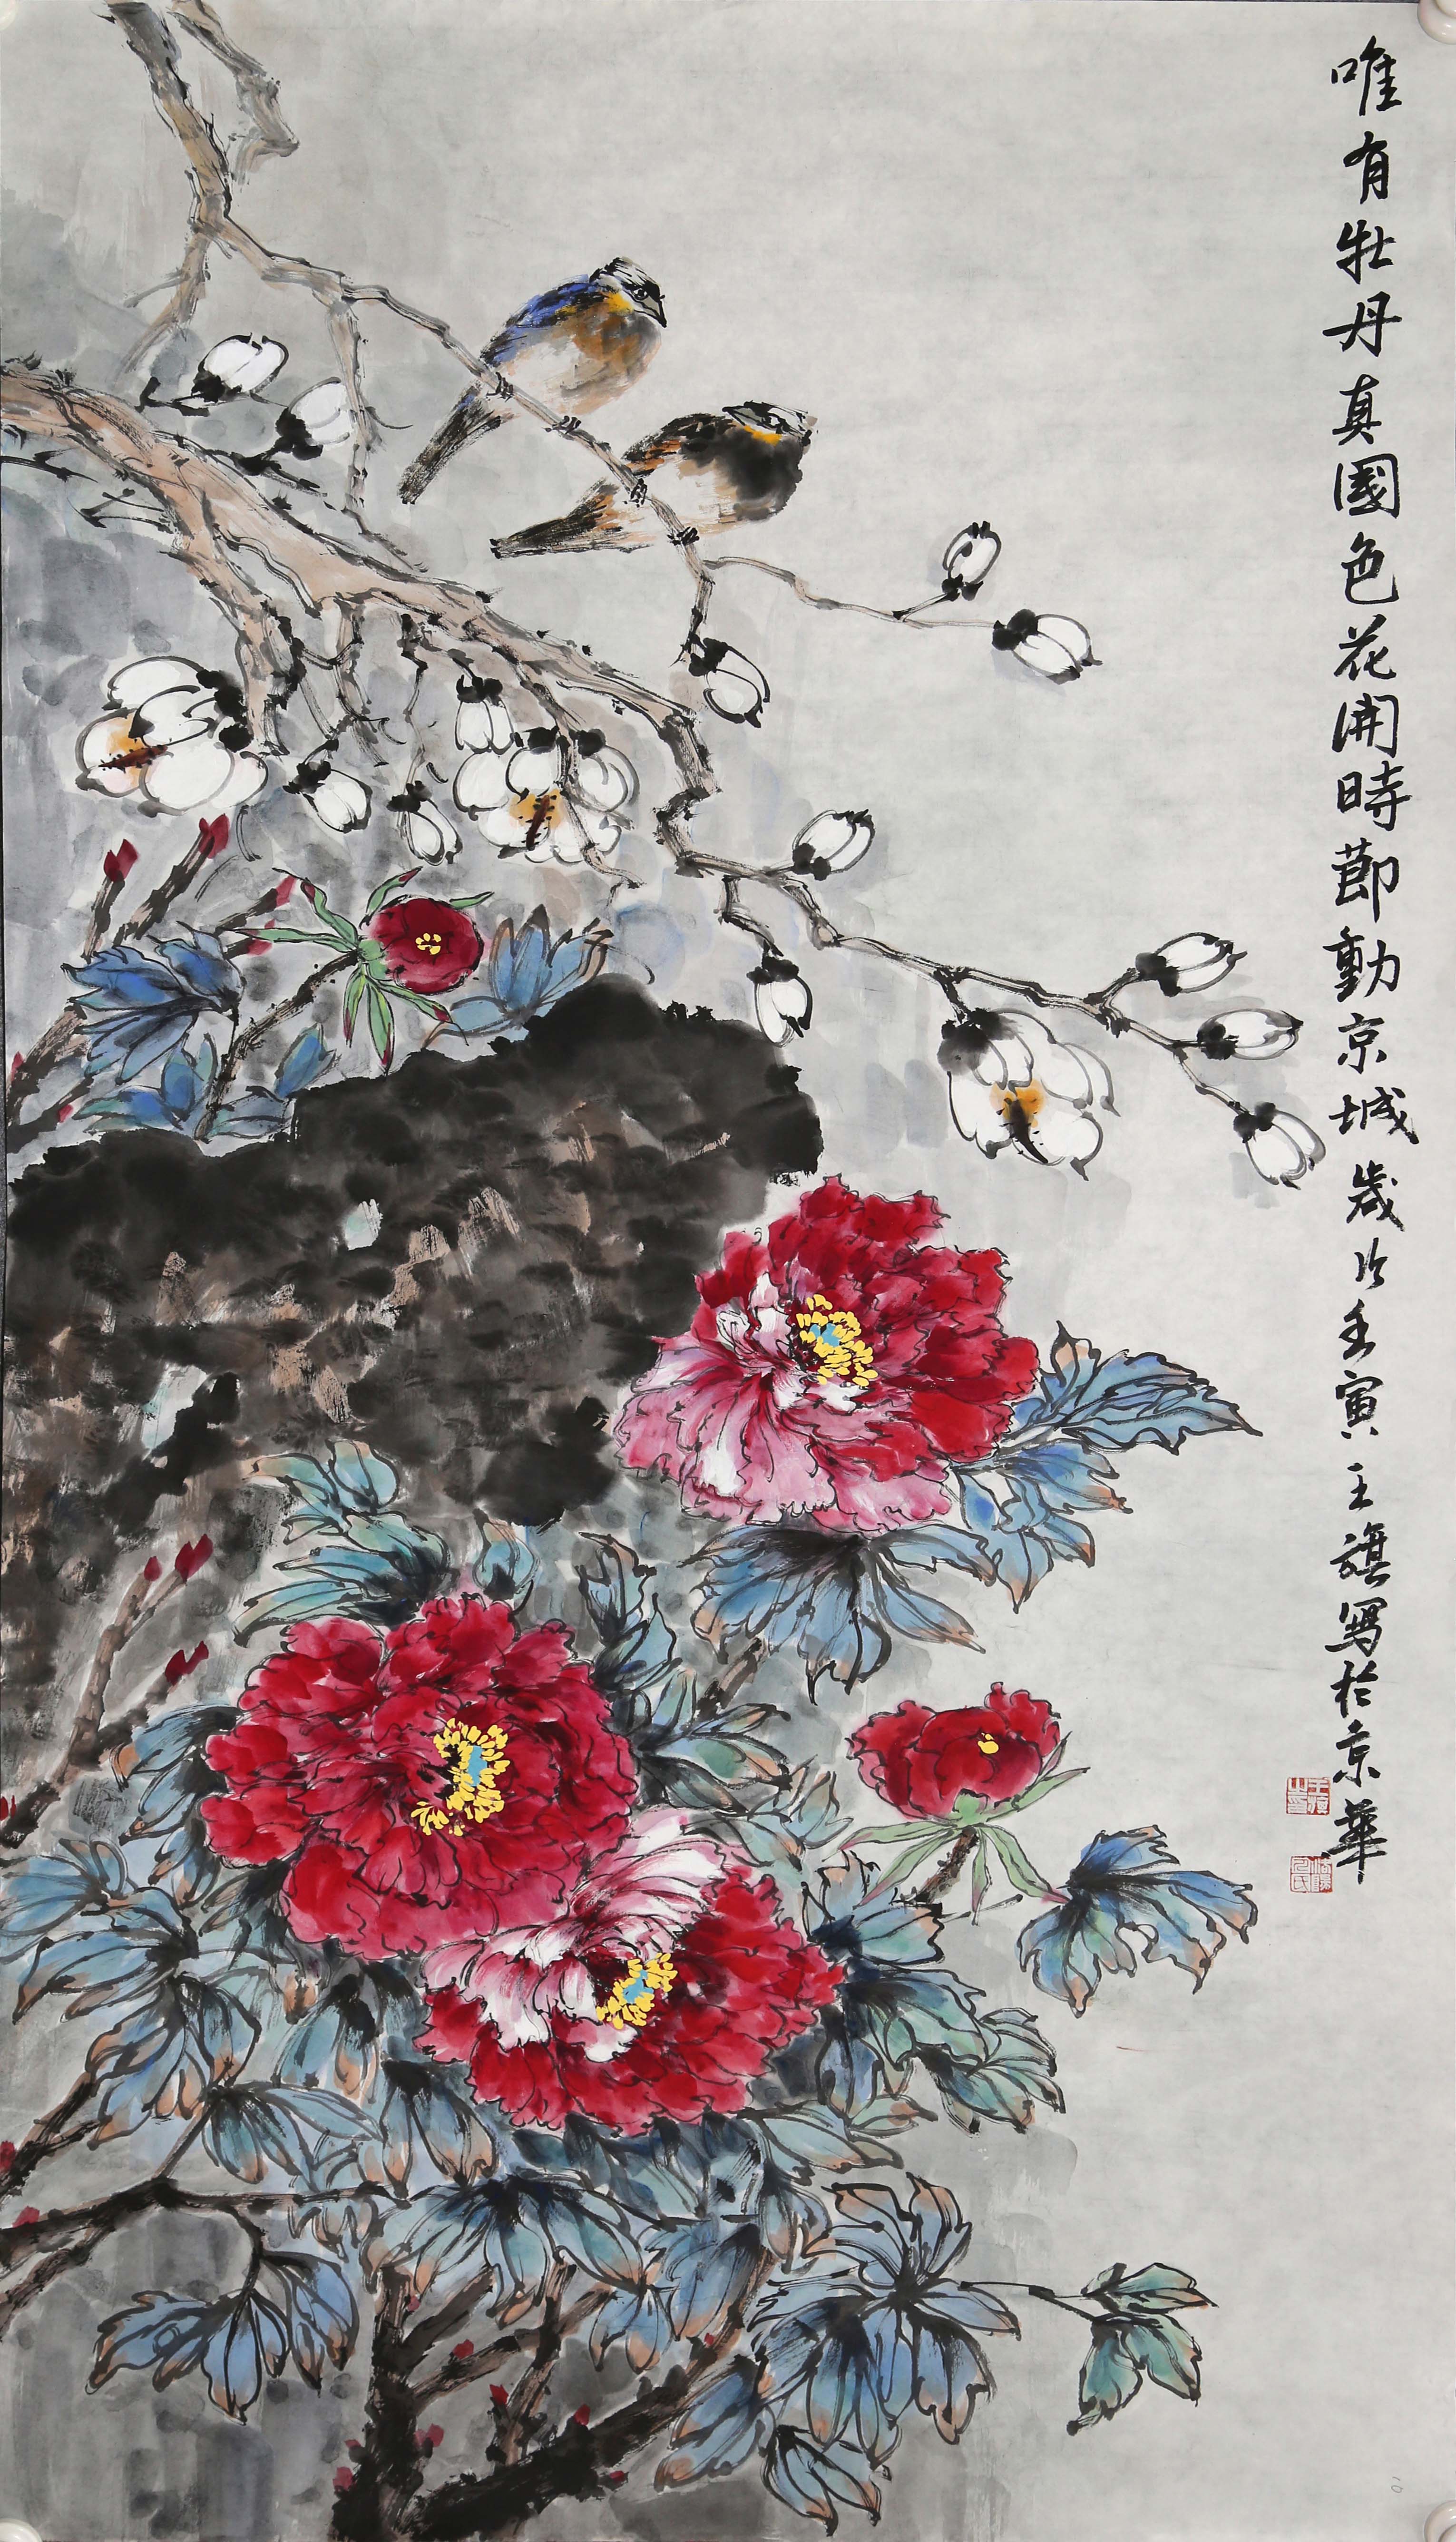 唯有牡丹真國色花開時節動京城歲次壬寅王旗寫於京華